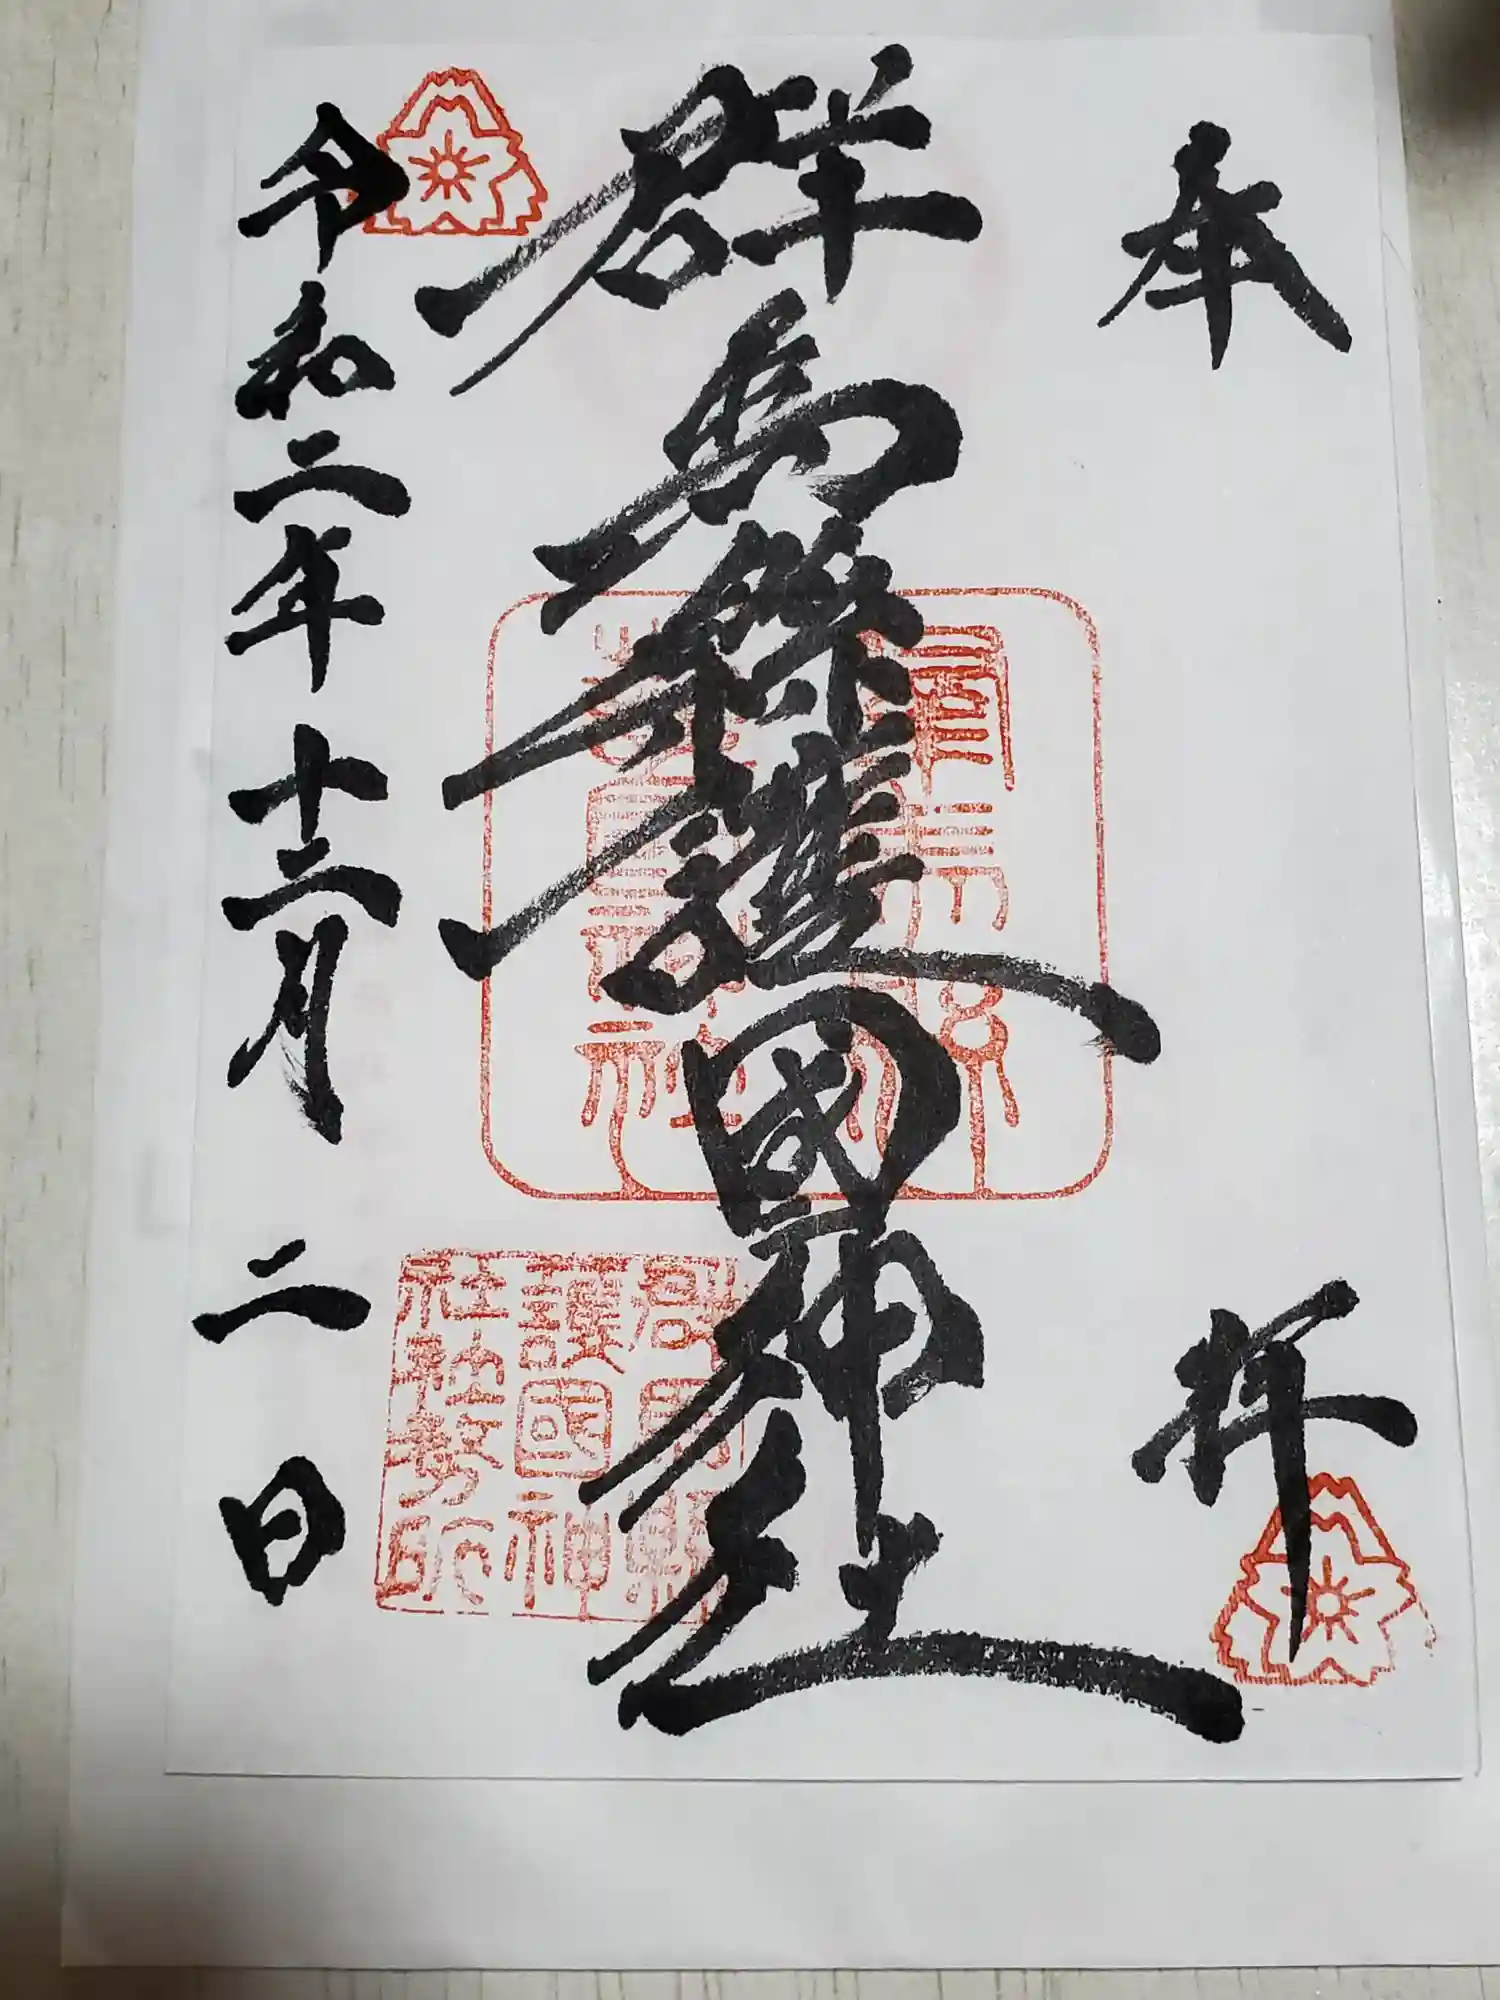 奉拝
群馬縣護國神社
令和二年十二月二日
群馬縣
護國神
社社務所